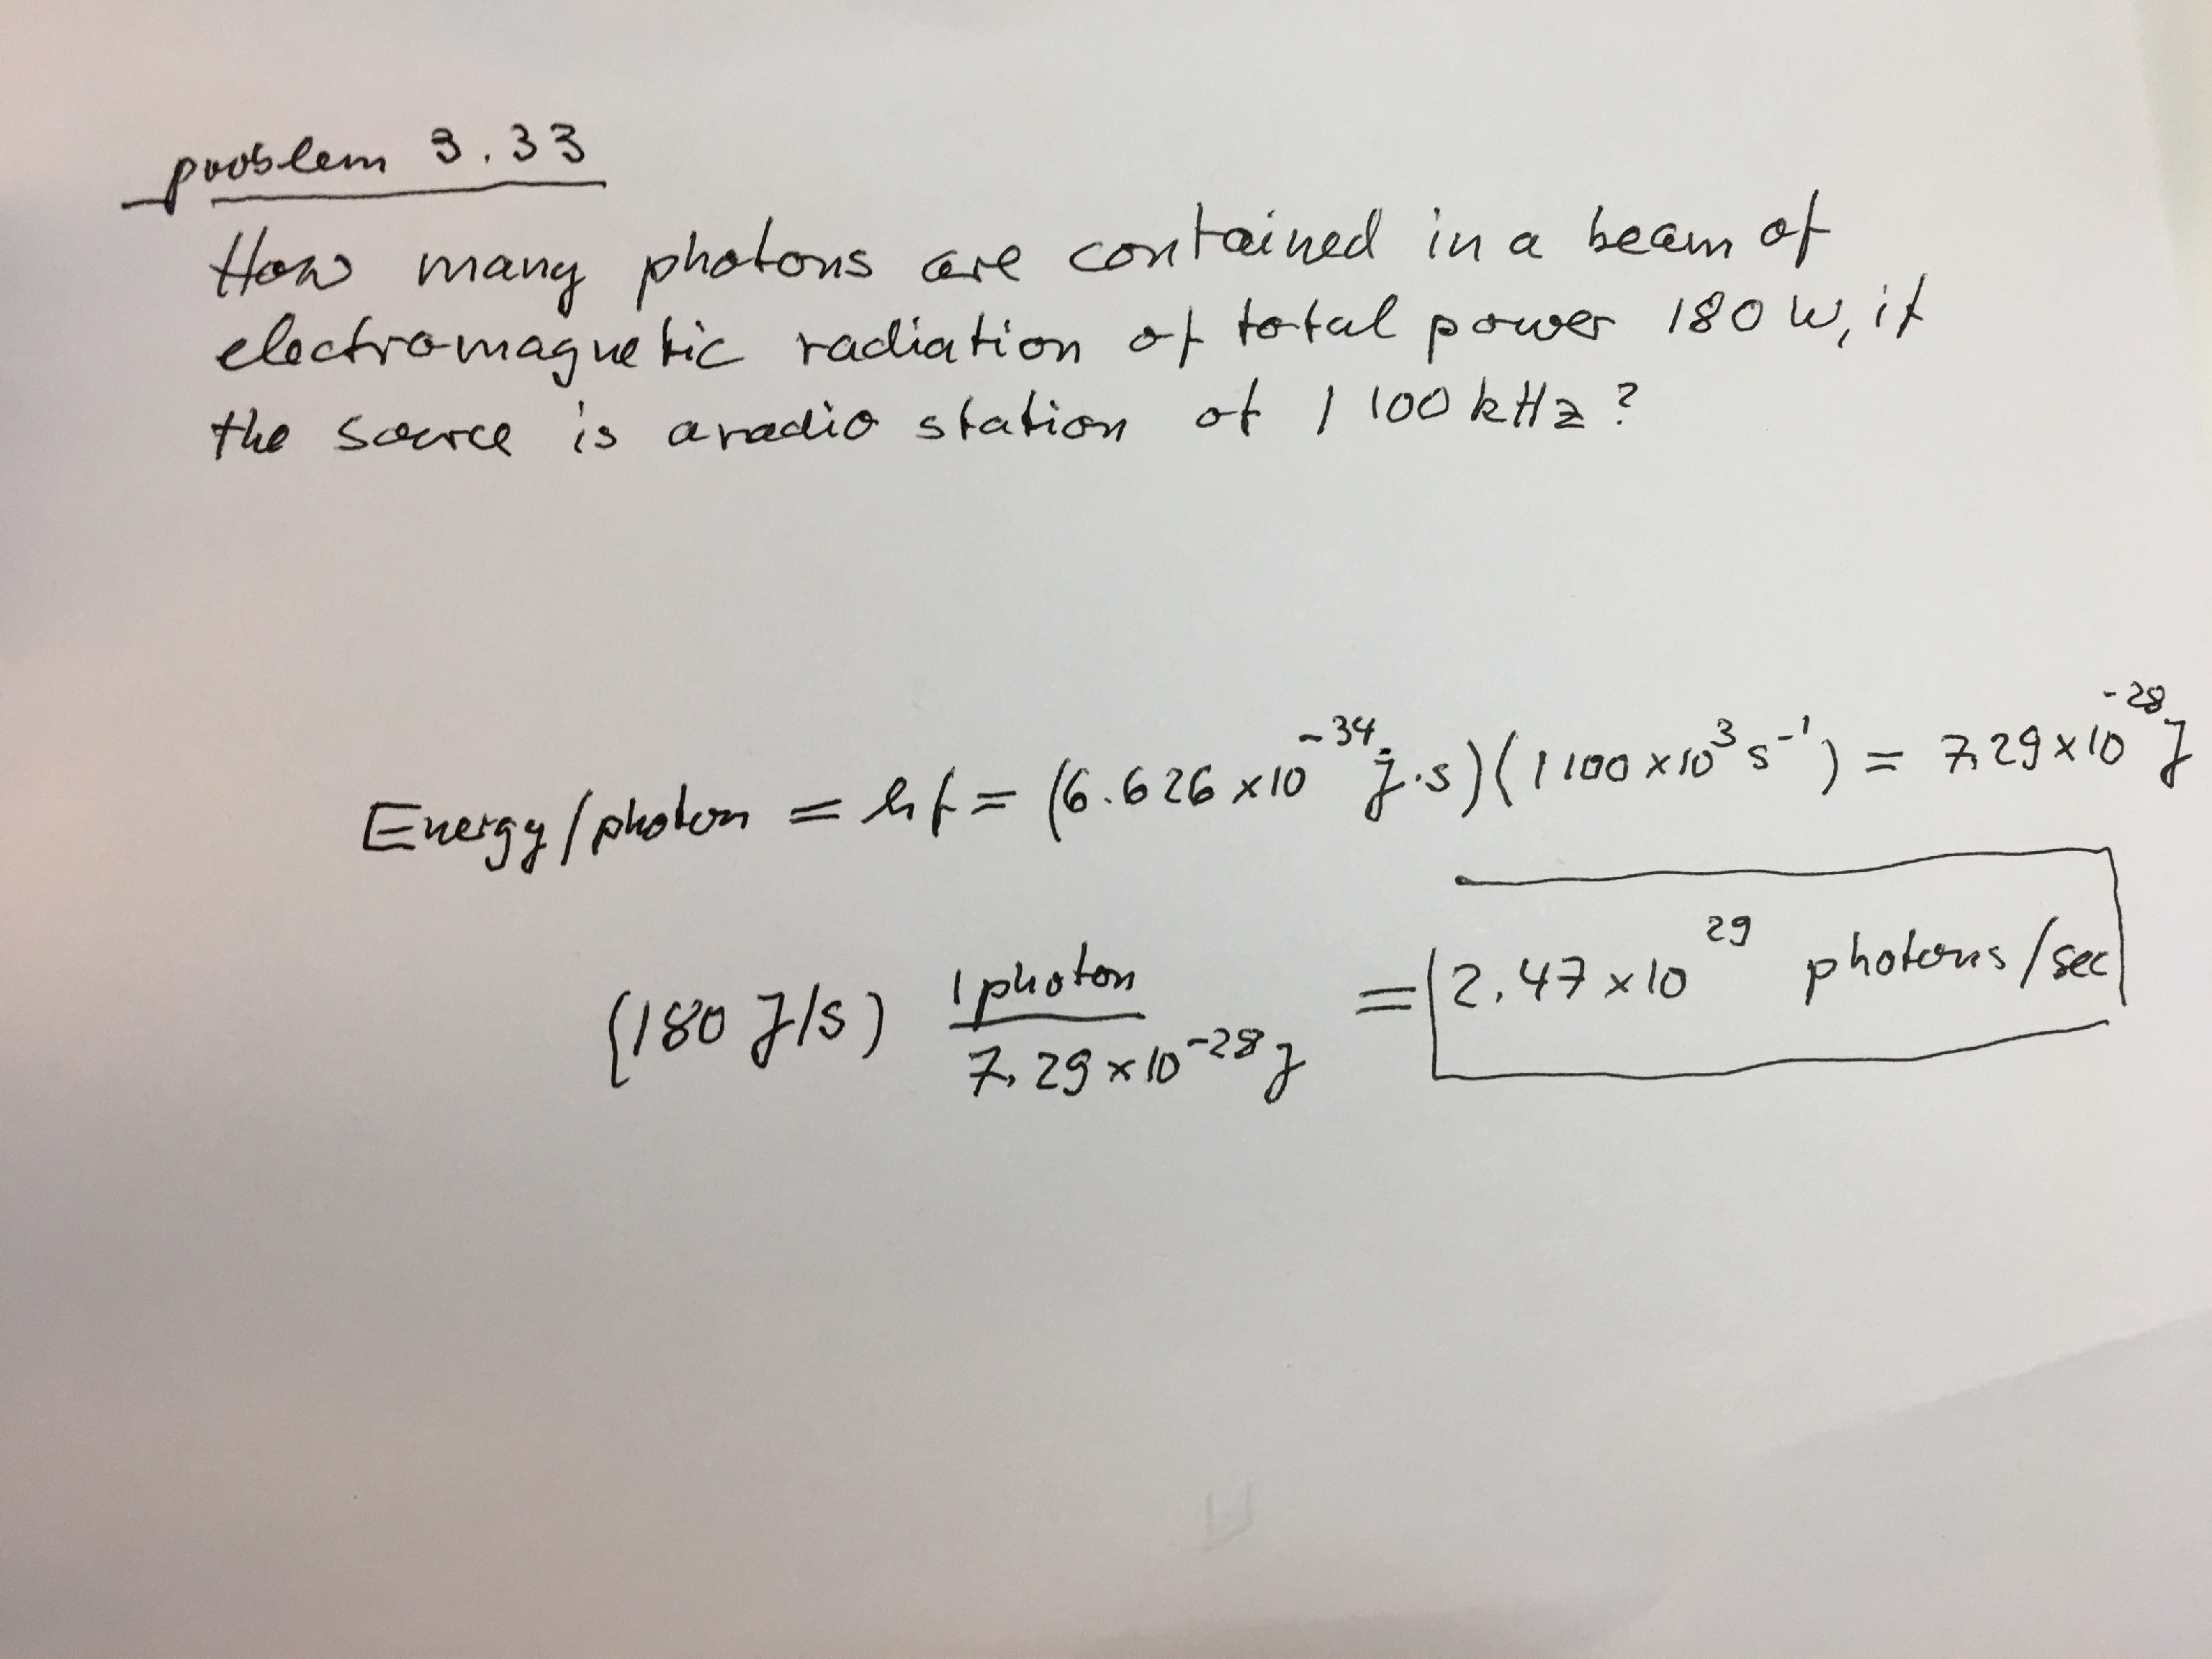 problem 3.33
How many photons are contained in a beam of
electromagnetic radiation of total power 180 W, if
the source is a radio station of 1100 kHz?
Energy/photon = hf = (6.626 × 10⁻³⁴ J·s)(1100 × 10³ s⁻¹) = 7.29 × 10⁻²⁸ J
(180 J/s) 1 photon / 7.29 × 10⁻²⁸ J = 2.47 × 10²⁹ photons/sec